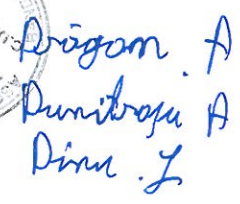 Drăgan. A
Dumitrașcu A
Dinu. L